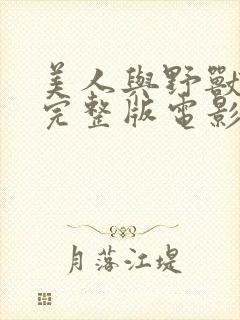 美人與野獸
完整版電影
月落江堤